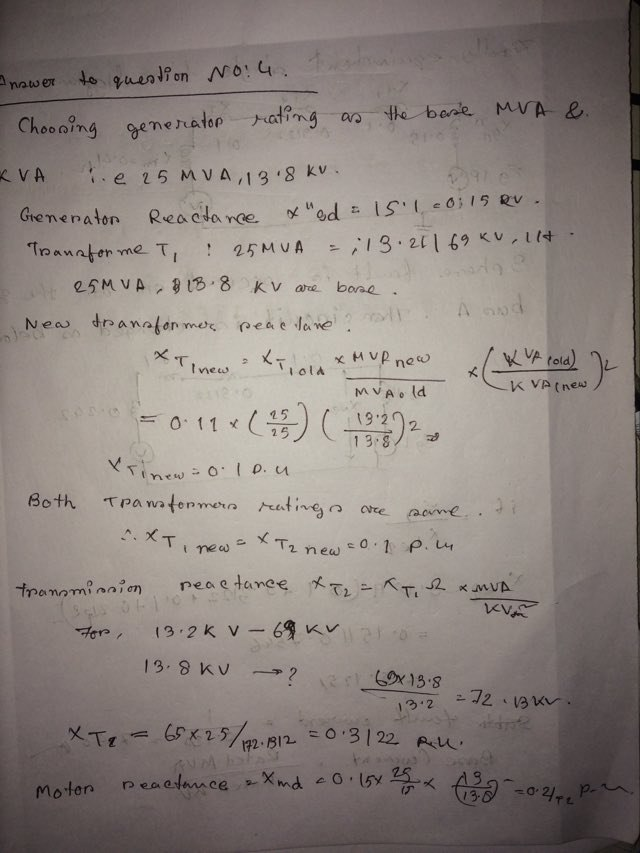 Answer to question NO:4.
Choosing generator rating as the base MVA &
KVA i.e 25 MVA, 13.8 KV.
Generator Reactance x"gd = 15.1 = 0.15
Transforme T1 : 25MVA = 13.2 | 69 KV, 11%.
25MVA, 13.8 KV are base.
New transformer reactane.
X T1 new = X T1 old × MVA new / MVA old × (KVA (old) / KVA (new))2
= 0.11 × (25/25) (13.2/13.8)2
XT1 new = 0.1 p.u
Both Transformers ratings are same.
∴ XT1 new = XT2 new = 0.1 p.u
Transmission reactance XT2 = XT1 Ω × MVA / KV
For, 13.2 K V – 69 KV
13.8 KV → ? 69×13.8 / 13.2 = 72.13 KV.
XT2 = 65 × 25 / 172.1312 = 0.3122 P.U.
Motor reactance = Xmd = 0.15 × 25/15 × (13/13.8) p.u